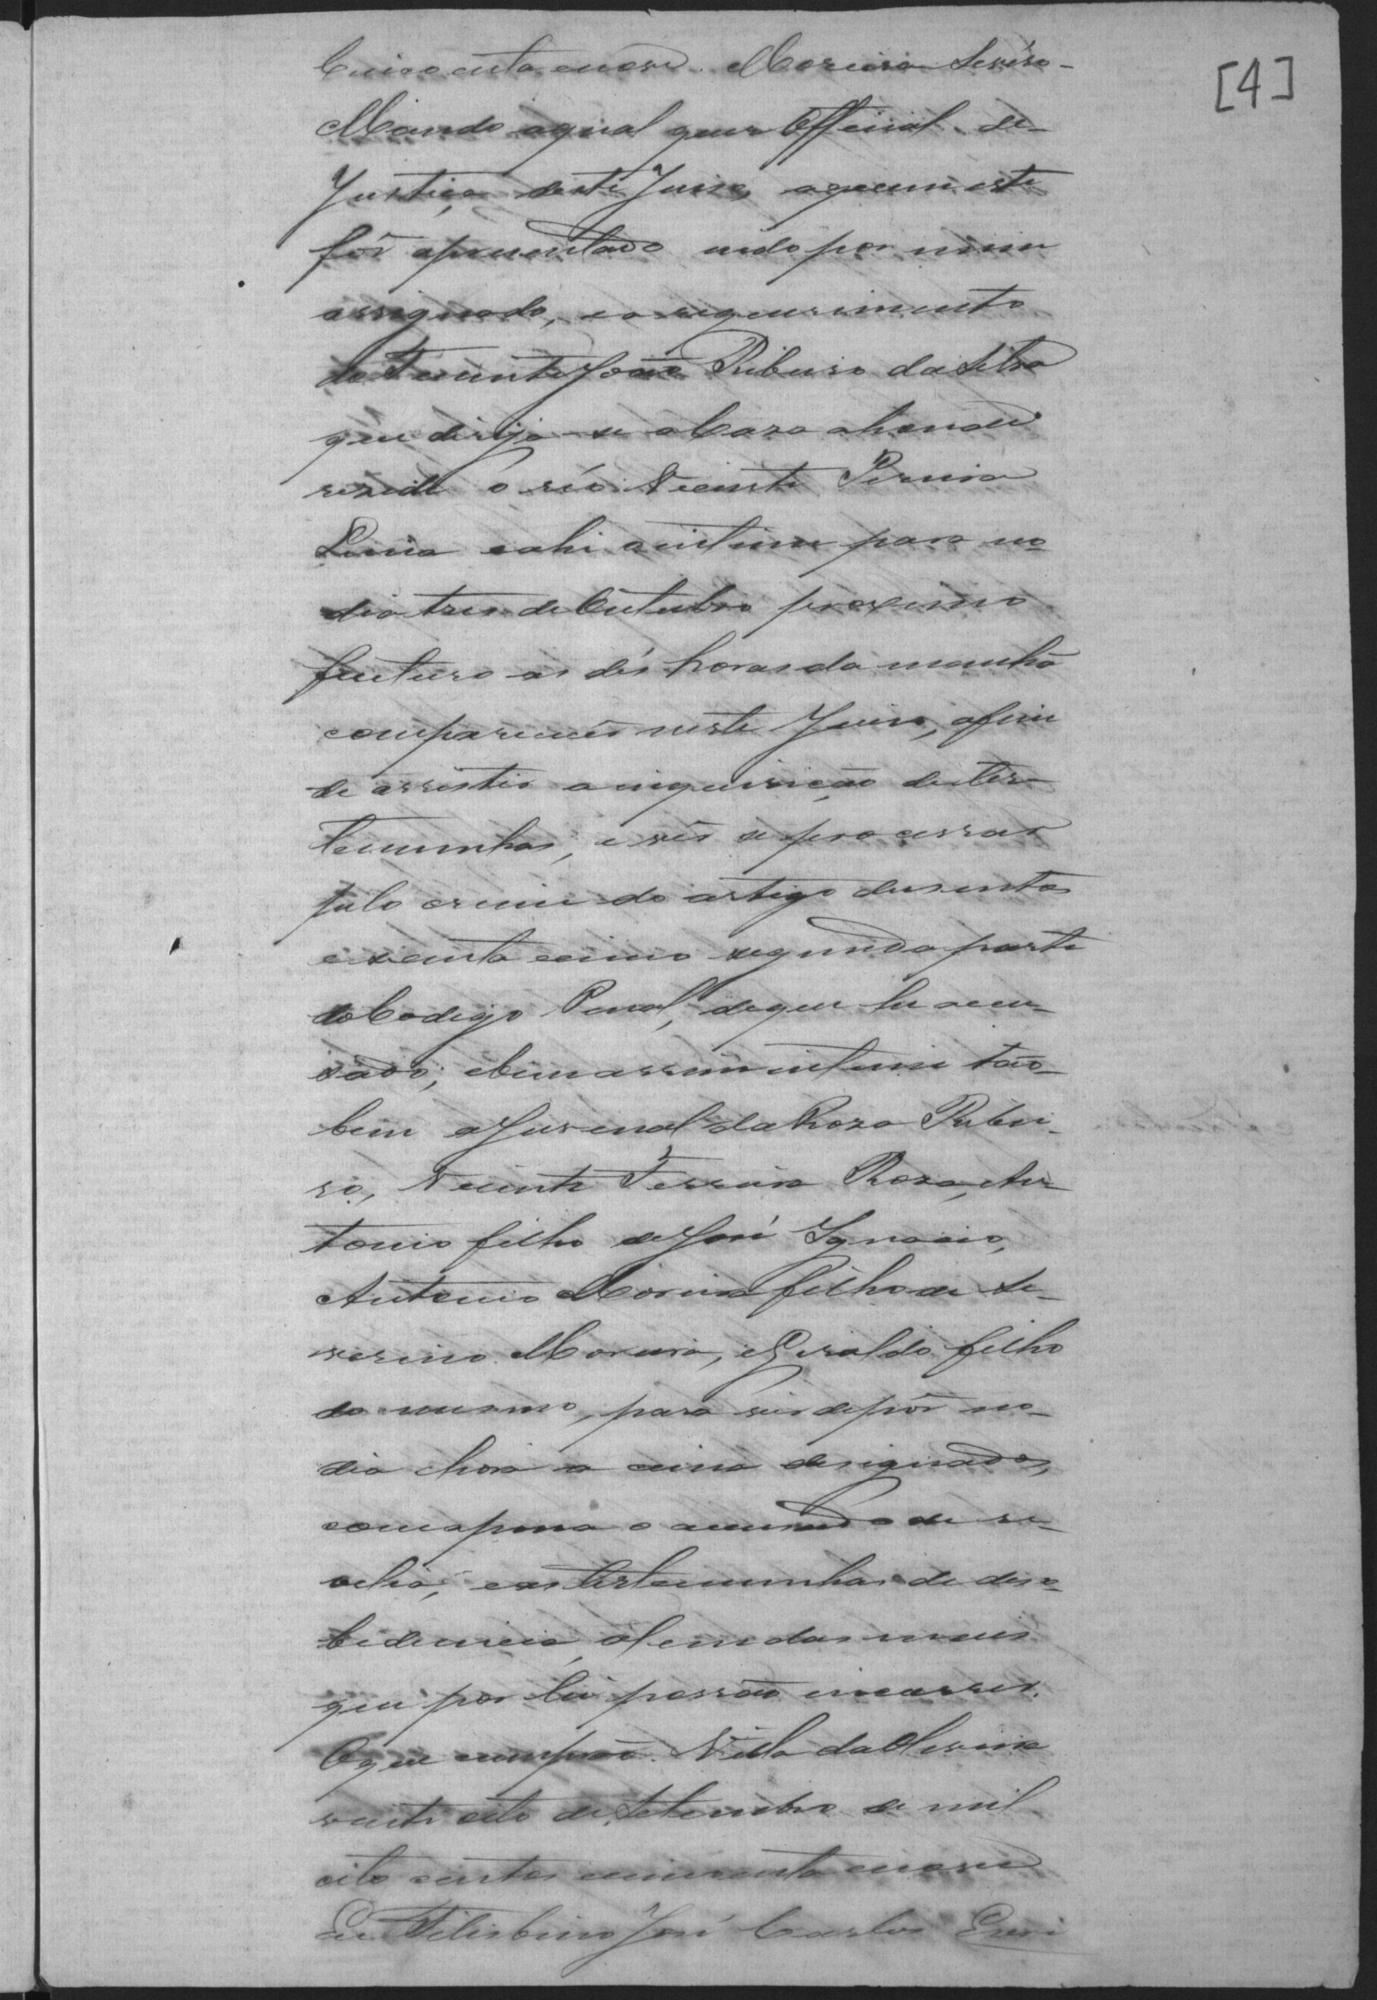 [4]
Cincoenta e nove. Moreira Severo
Mando a qual quer Official de
Justiça deste Juizo, a quem este
fôr apresentado indo por mim
assignado, e a requerimento
do Tenente João Ribeiro da Silva
que dirija-se a Caza ahonde
rezide o réo Vicente Pereira
Lima e ahi o intime para no
dia tres de Outubro proximo
futuro as dés horas da manhã
comparecer neste Juizo, afim
de assistir a inquirição de tes-
temunhas, e vêr se processar
pelo crime do artigo dusentos
e secenta e cinco segunda parte
do Codigo Penal, de que he accu-
sado; e bem assim intime tão-
bem a Juvenal da Roza Ribei-
ro, Vicente Ferreira Roza, An-
tonio filho de José Ignacio,
Antonio Moreira filho de Se-
verino Moreira, e Giraldo filho
do mesmo, para vir depôr no
dia e hora a cima designados,
com a pena o accusado de re-
velia, e as testemunhas de deso-
bidiencia, alem das mais
que por lei possão incorrer.
O que cumprão. Villa da
vinte oito de Setembro de mil
oito centos cincoenta e nove
Eu Felisbino José Carlos Escri